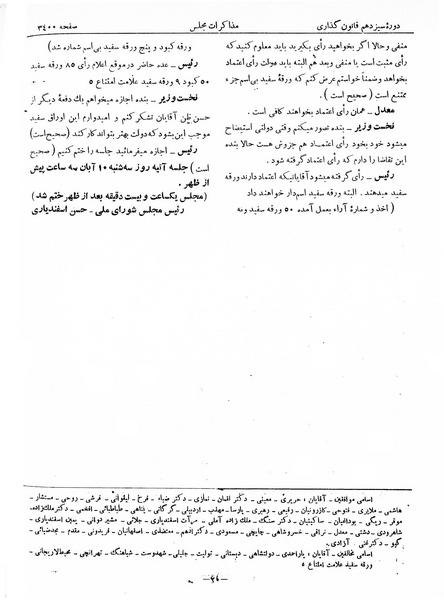 دورهٔ سیزدهم قانون گذاری
مذاکرات مجلس
صفحه ۳۴۰۰
منفی و حالا اگر بخواهید رأی بگیرید باید معلوم کنید که
رأی مثبت است یا منفی وبعد هم البته باید دولت رأی اعتماد
بخواهد وضمناً خواستم عرض کنم که ورقهٔ سفید بی‌اسم جزء
ممتنع است ( صحیح است ) .
معدل ـ همان رأی اعتماد بخواهند کافی است .
نخست وزیر ـ بنده تصور میکنم وقتی دولتی استیضاح
میشود خود بخود رأی اعتمـاد هم جزوش هست حالا بنده
این تقاضا را دارم که رأی اعتماد گرفته شود .
رئیس ـ رأی گرفته میشود آقایانیکه اعتماد دارند ورقه
سفید میدهند . البته ورقه سفید اسم‌دار خواهند داد
( اخذ و شمارهٔ آراء بعمل آمده ۵۰ ورقه سفید و نه
ورقه کبود و پنج ورقه سفید بی‌اسم شماره شد )
رئیس ـ عده حاضر در موقع اعلام رأی ۸۵ ورقه سفید
۵۰ کبود ۹ ورقه سفید علامت امتناع ۵
نخست وزیر ـ بنده اجازه میخواهم یك دفعهٔ دیگر از
حسن ظن آقایان تشکر کنم و امیدوارم این اوراق سفید
موجب این بشود که دولت بهتر بتواند کار کند (صحیح است)
رئیس ـ اجازه میفرمائید جلسه را ختم کنیم ( صحیح
است ) جلسه آتیه روز سه‌شنبه ۱۰ آبان سه ساعت پیش
از ظهر .
(مجلس یکساعت و بیست دقیقه بعد از ظهر ختم شد )
رئیس مجلس شورای ملی ـ حسن اسفندیاری
اسامی موافقین ـ آقایان ، حریری ـ معینی ـ دکتر افعان ـ نمازی ـ دکتر ضیاء ـ فرخ ـ ایقوانی ـ فرشی ـ روحی ـ مستشار ـ
هاشمی ـ ملایری ـ فتوحی ـ کازرونیان ـ رفیعی ـ رهبری ـ پارسا ـ مهذب ـ اردبیلی ـ گرگانی ـ پناهی ـ طباطبائی ـ افخمی ـ دکتر ملك‌زاده ـ
موقر ـ ریگی ـ بوداغیان ـ ساکینیان ـ دکتر سنگ ـ ملك زاده آملی ـ اسفندیاری ـ جلائی ـ مشیر دوانی ـ یمین اسفندیاری ـ
شاهرودی ـ دشتی ـ معدل ـ نراقی ـ خسروشاهی ـ جاپچی ـ مسعودی ـ دکتر ادهم ـ معتضدی ـ اصفهانیان ـ فریدونی ـ مقدم ـ افخمی
گیو ـ دکتر آزادی ـ
اسامی مخالفین ـ آقایان ، یاراحمدی ـ دولتشاهی ـ دبستانی ـ تولیت ـ جلیلی ـ شهدوست ـ شباهنگ ـ تهرانچی ـ عبدالاریجانی ـ
ورقه سفید علامت امتناع ۵